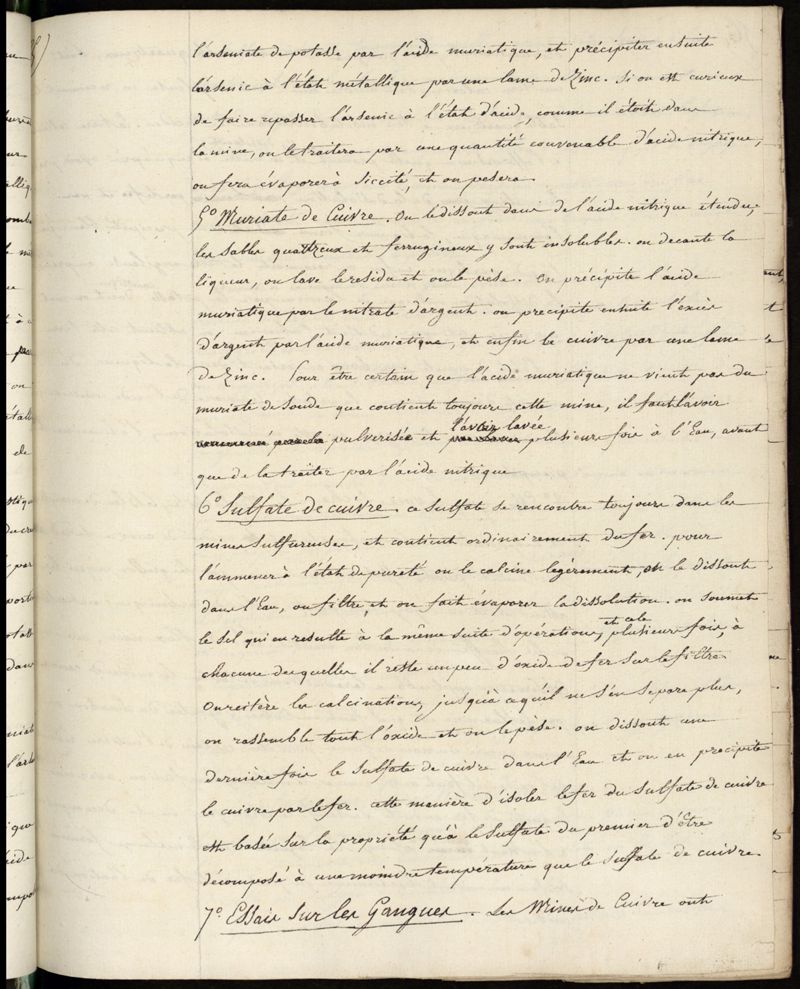 l'arseniate de potasse par l'acide muriatique, et précipiter ensuite
l'arsenic à l'état métallique par une lame de Zinc. Si on est curieux
de faire repasser l'arsenic à l'état d'acide, comme il étoit dans
la mine, on le traitera par une quantité convenable d'acide nitrique,
on fera évaporer à siccité, et on pesera.
5° Muriate de Cuivre. On le dissout dans de l'acide nitrique étendu,
les sables quartzeux et ferrugineux y sont insolubles. on decante la
liqueur, on lave le residu et on le pèse. On précipite l'acide
muriatique par le nitrate d'argent. on precipite ensuite l'excès
d'argent par l'acide muriatique, et enfin le cuivre par une lame
de Zinc. Pour être certain que l'acide muriatique ne vient pas du
muriate de soude que contient toujours cette mine, il faut l'avoir
pulverisée et l'avoir lavée plusieurs fois à l'Eau, avant
que de la traiter par l'acide nitrique
6° Sulfate de cuivre. ce sulfate se rencontre toujours dans les
mines sulfureuses, et contient ordinairement du fer. pour
l'ammener à l'état de pureté on le calcine legèrement, on le dissout
dans l'Eau, on filtre, et on fait évaporer la dissolution. on soumet
le sel qui en resulte à la même suite d'opérations, et cela plusieurs fois, à
chacune desquelles il reste un peu d'oxide de fer sur le filtre.
On reitère les calcinations, jusqu'à ce qu'il ne s'en separe plus,
on rassemble tout l'oxide et on le pèse. on dissout une
dernière fois le sulfate de cuivre dans l'Eau et on en precipite
le cuivre par le fer. cette manière d'isoler le fer du sulfate de cuivre
est basée sur la propriété qu'à le sulfate du premier d'être
décomposé à une moindre température que le sulfate de cuivre.
7° Essais sur les Gangues. Les Mines de Cuivre ont